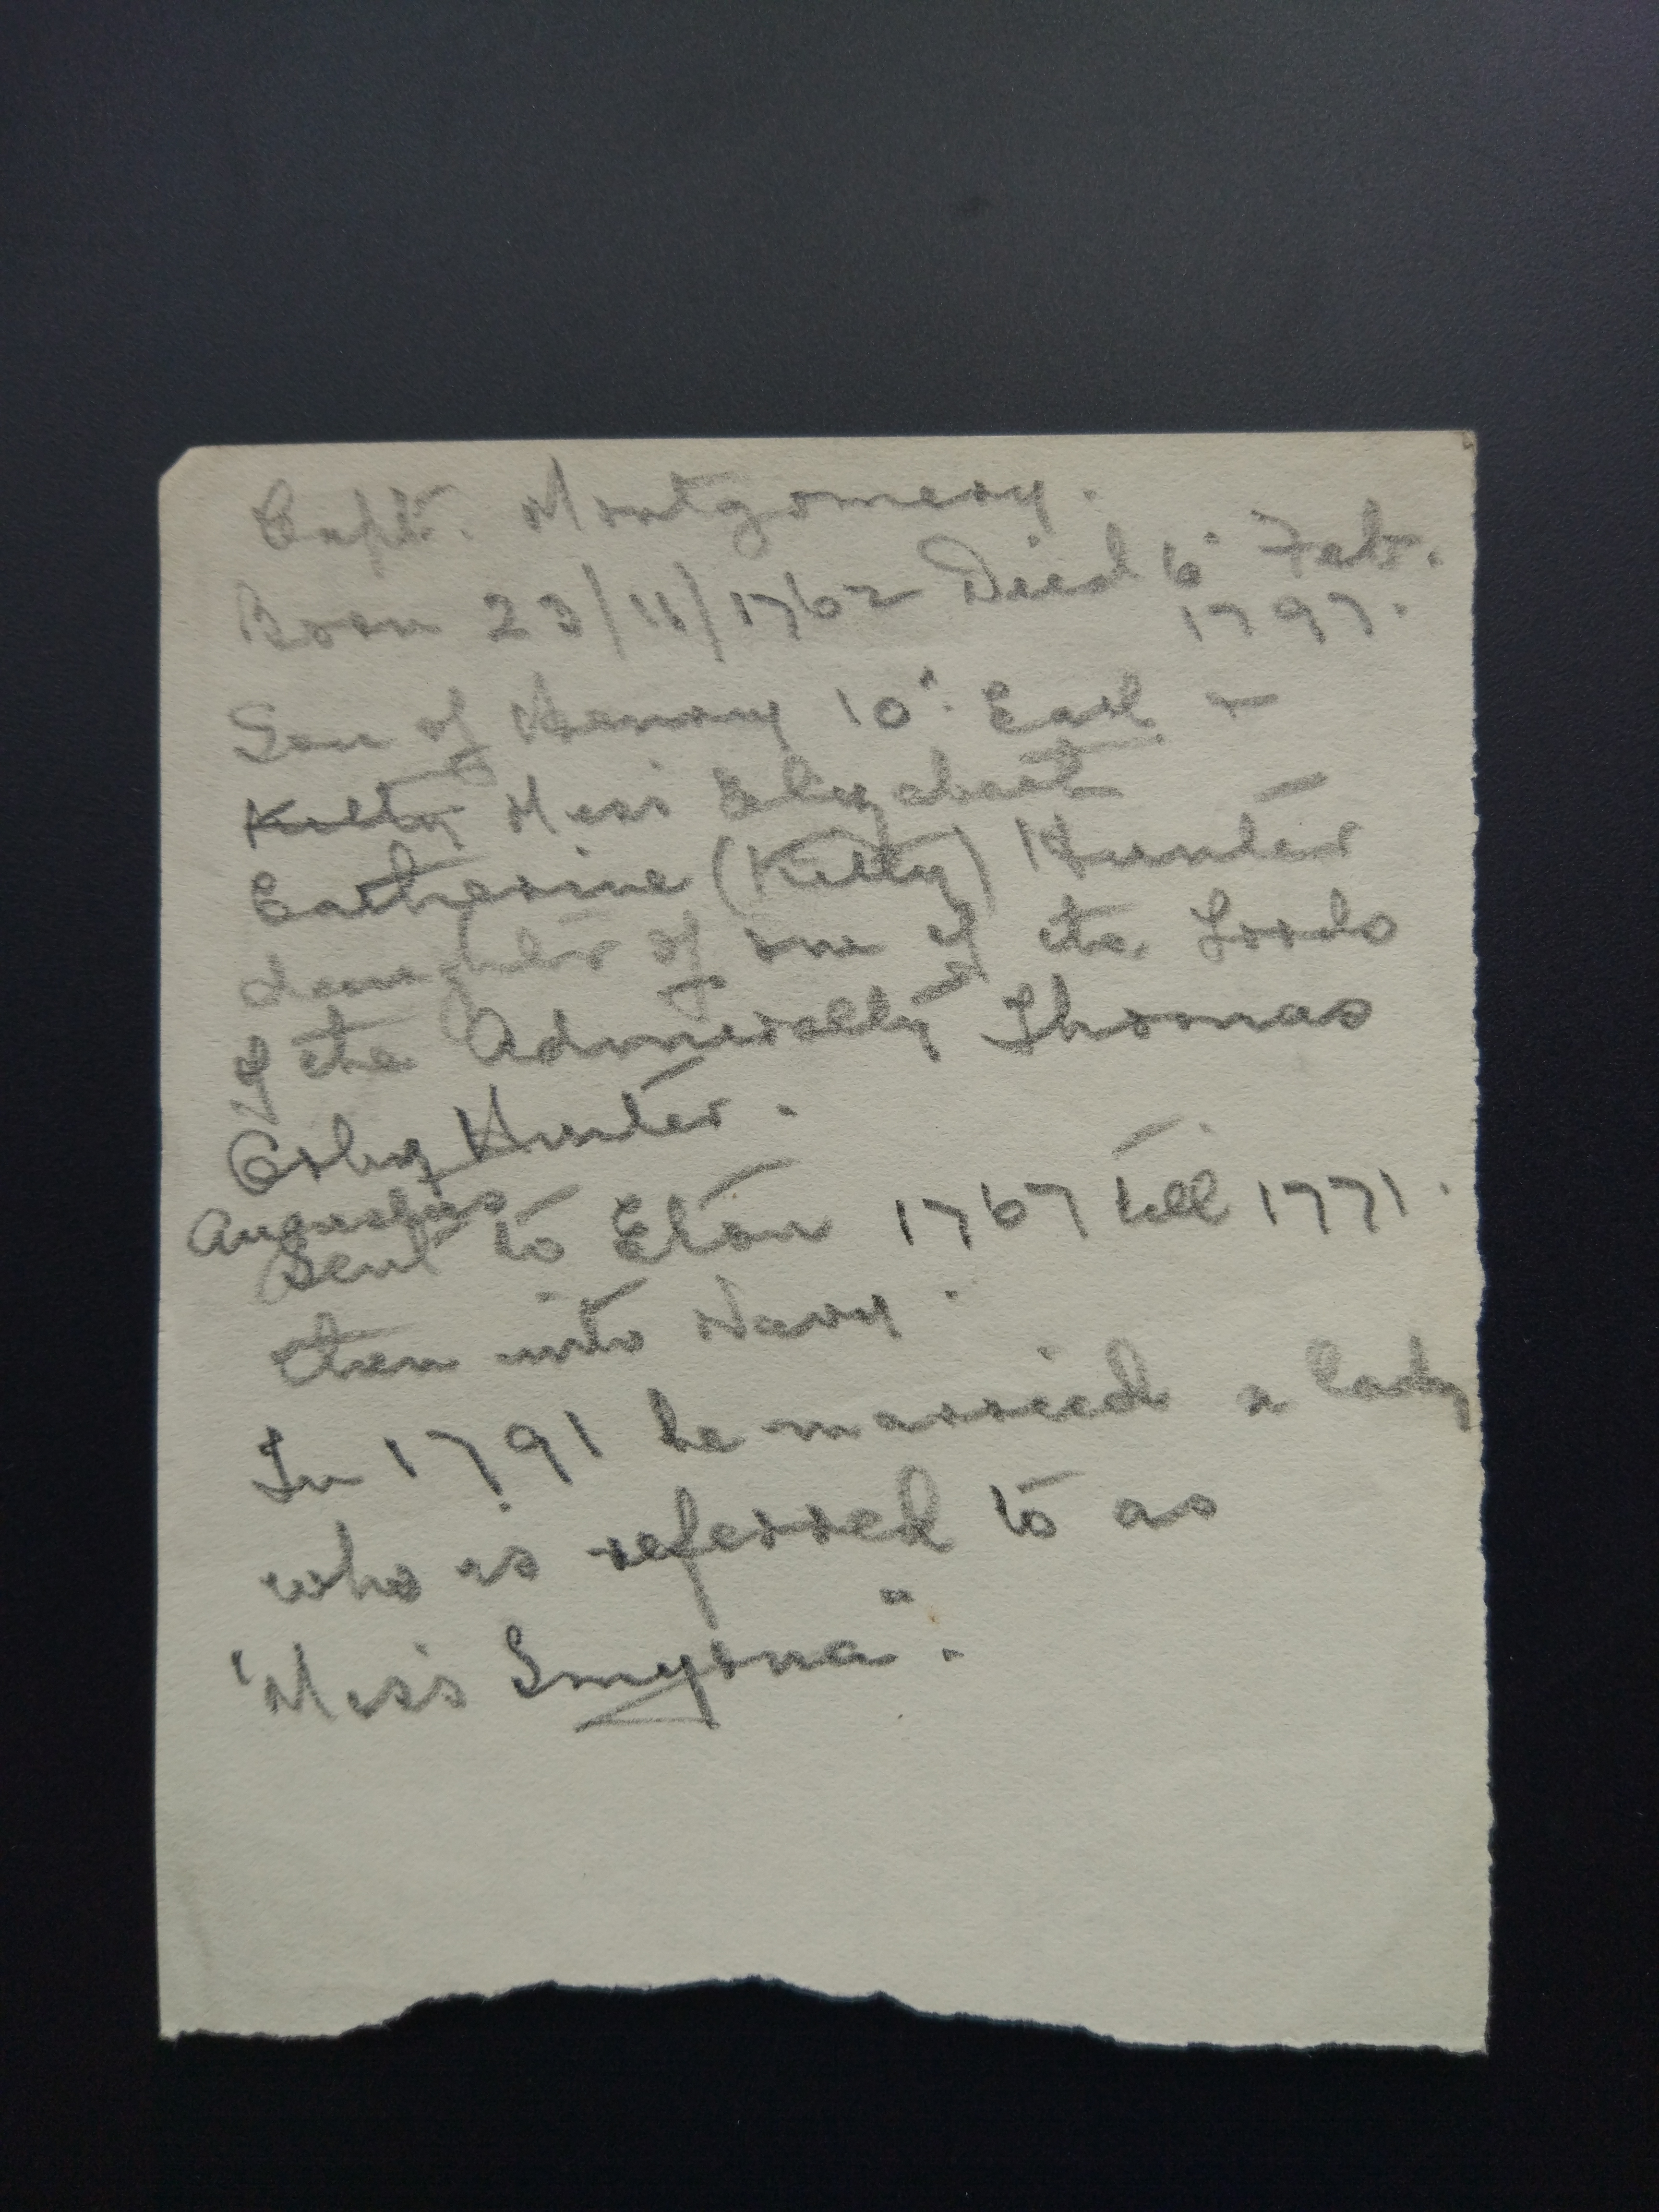 Capt. Montgomery.
Born 23/11/1762 Died 6" Feb.
1797.
Son of Henry 10": Earl &
Kitty Miss Elizabeth
Catherine (Kitty) Hunter
daughter of one of the Lords
of the Admiralty Thomas
Orby Hunter.
Augustus
Sent to Eton 1767 till 1771.
then into Navy.
In 1791 he married a lady
who is referred to as
"Miss Smyrna".